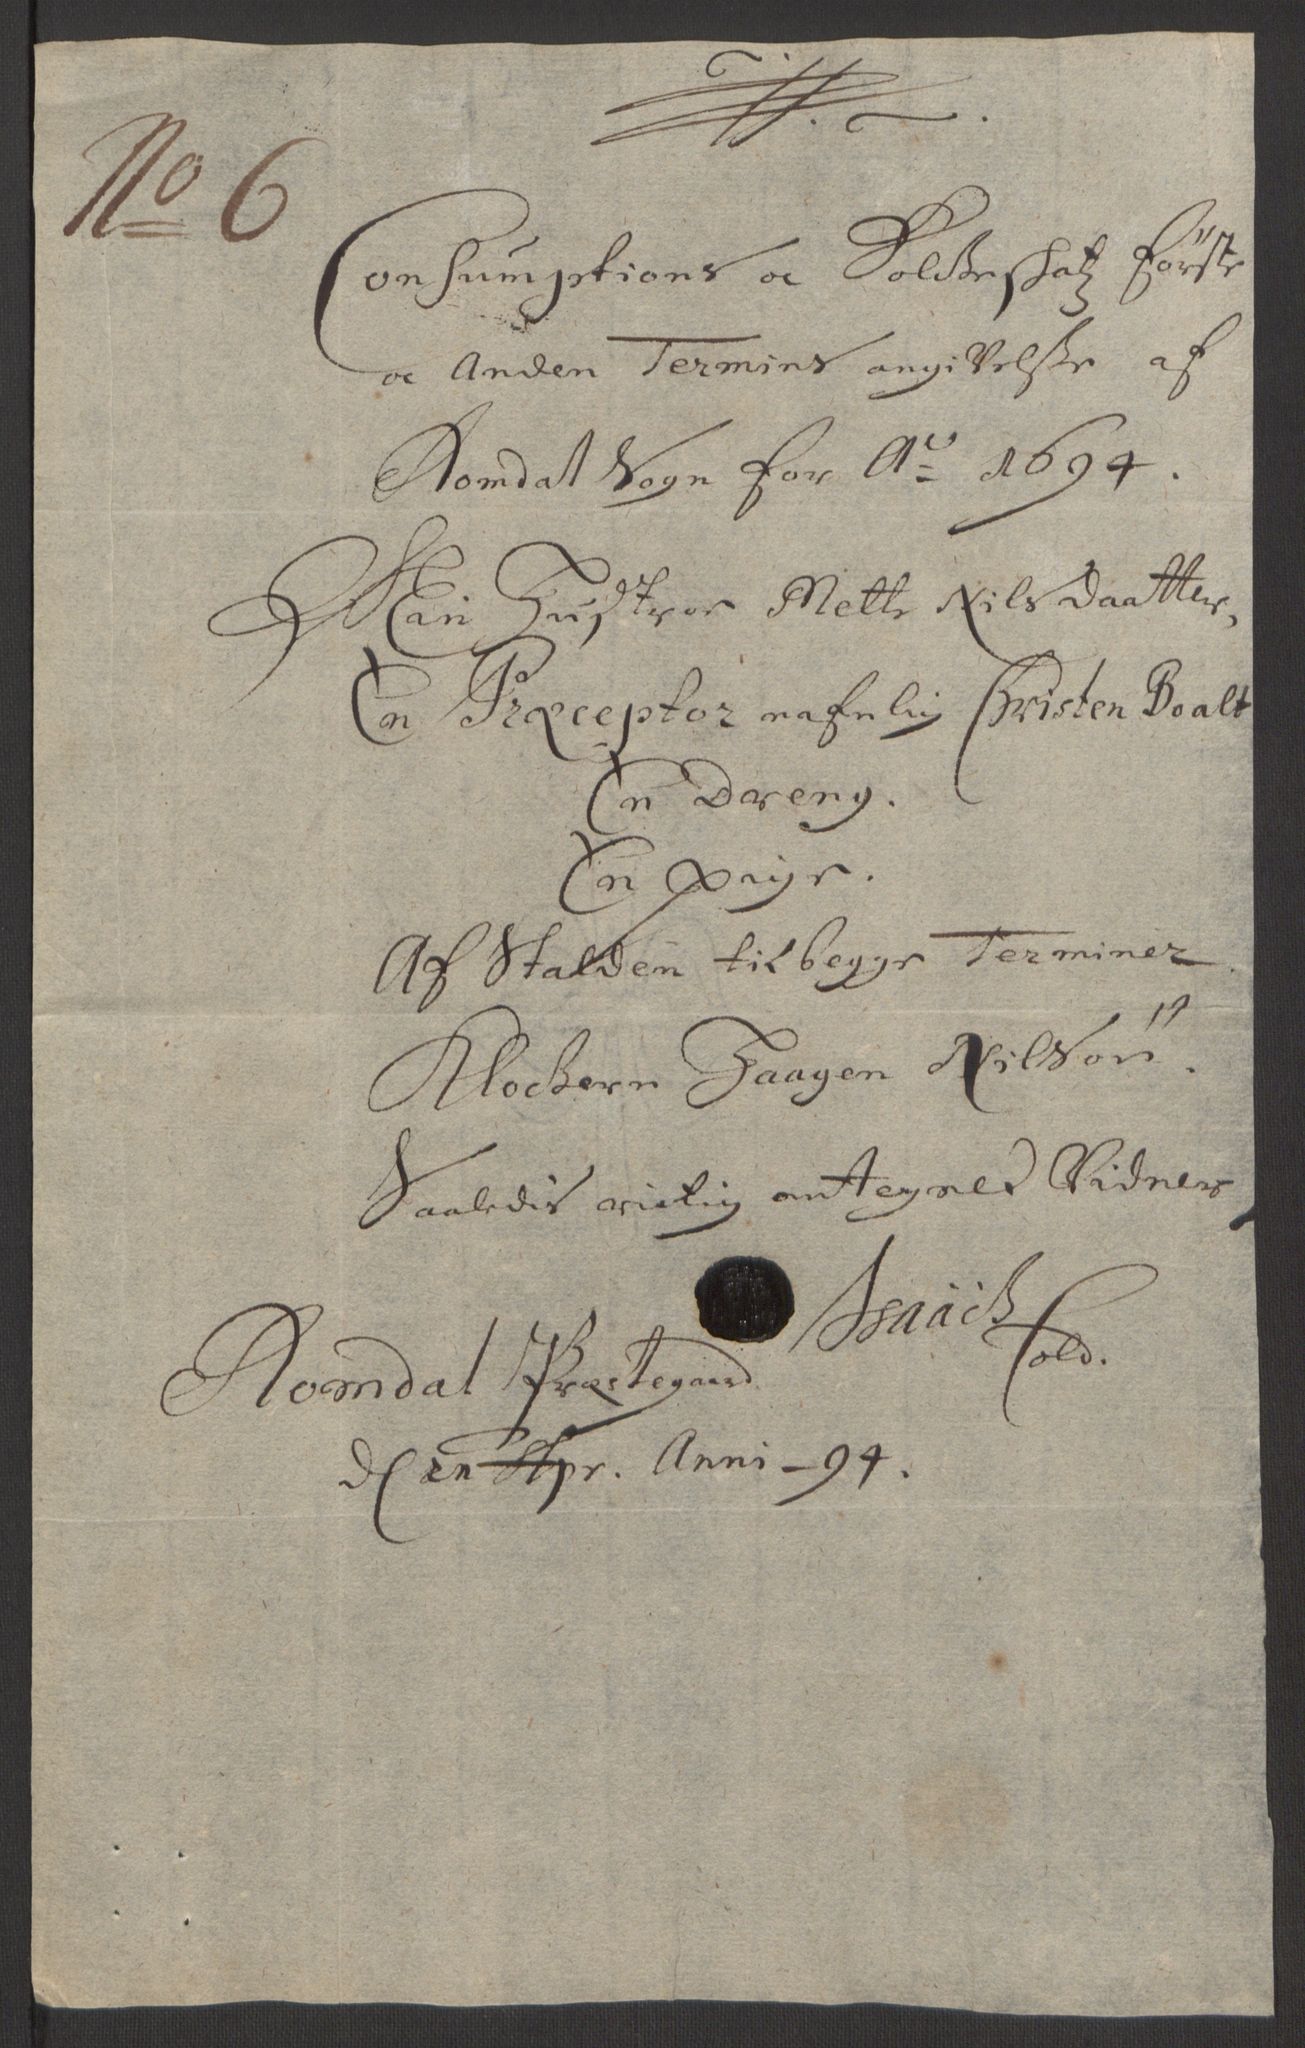 No 6
Consumptions oc Folcheschatz förste
oc Anden Termins angivelse af
Romdal Sogn for Ao 1694.
Main Hustroe Mette Nilsdaatter,
En Præceptor nafnlig Christen Boalt
En Dreng.
En pige.
Af Stalden til begge Terminer
Klockern Haagen Nilsön.
Saaledis rictig antegned Vidner
Isaäch
Cold.
Romdal Præstegaard
d Apr. Anni -94.